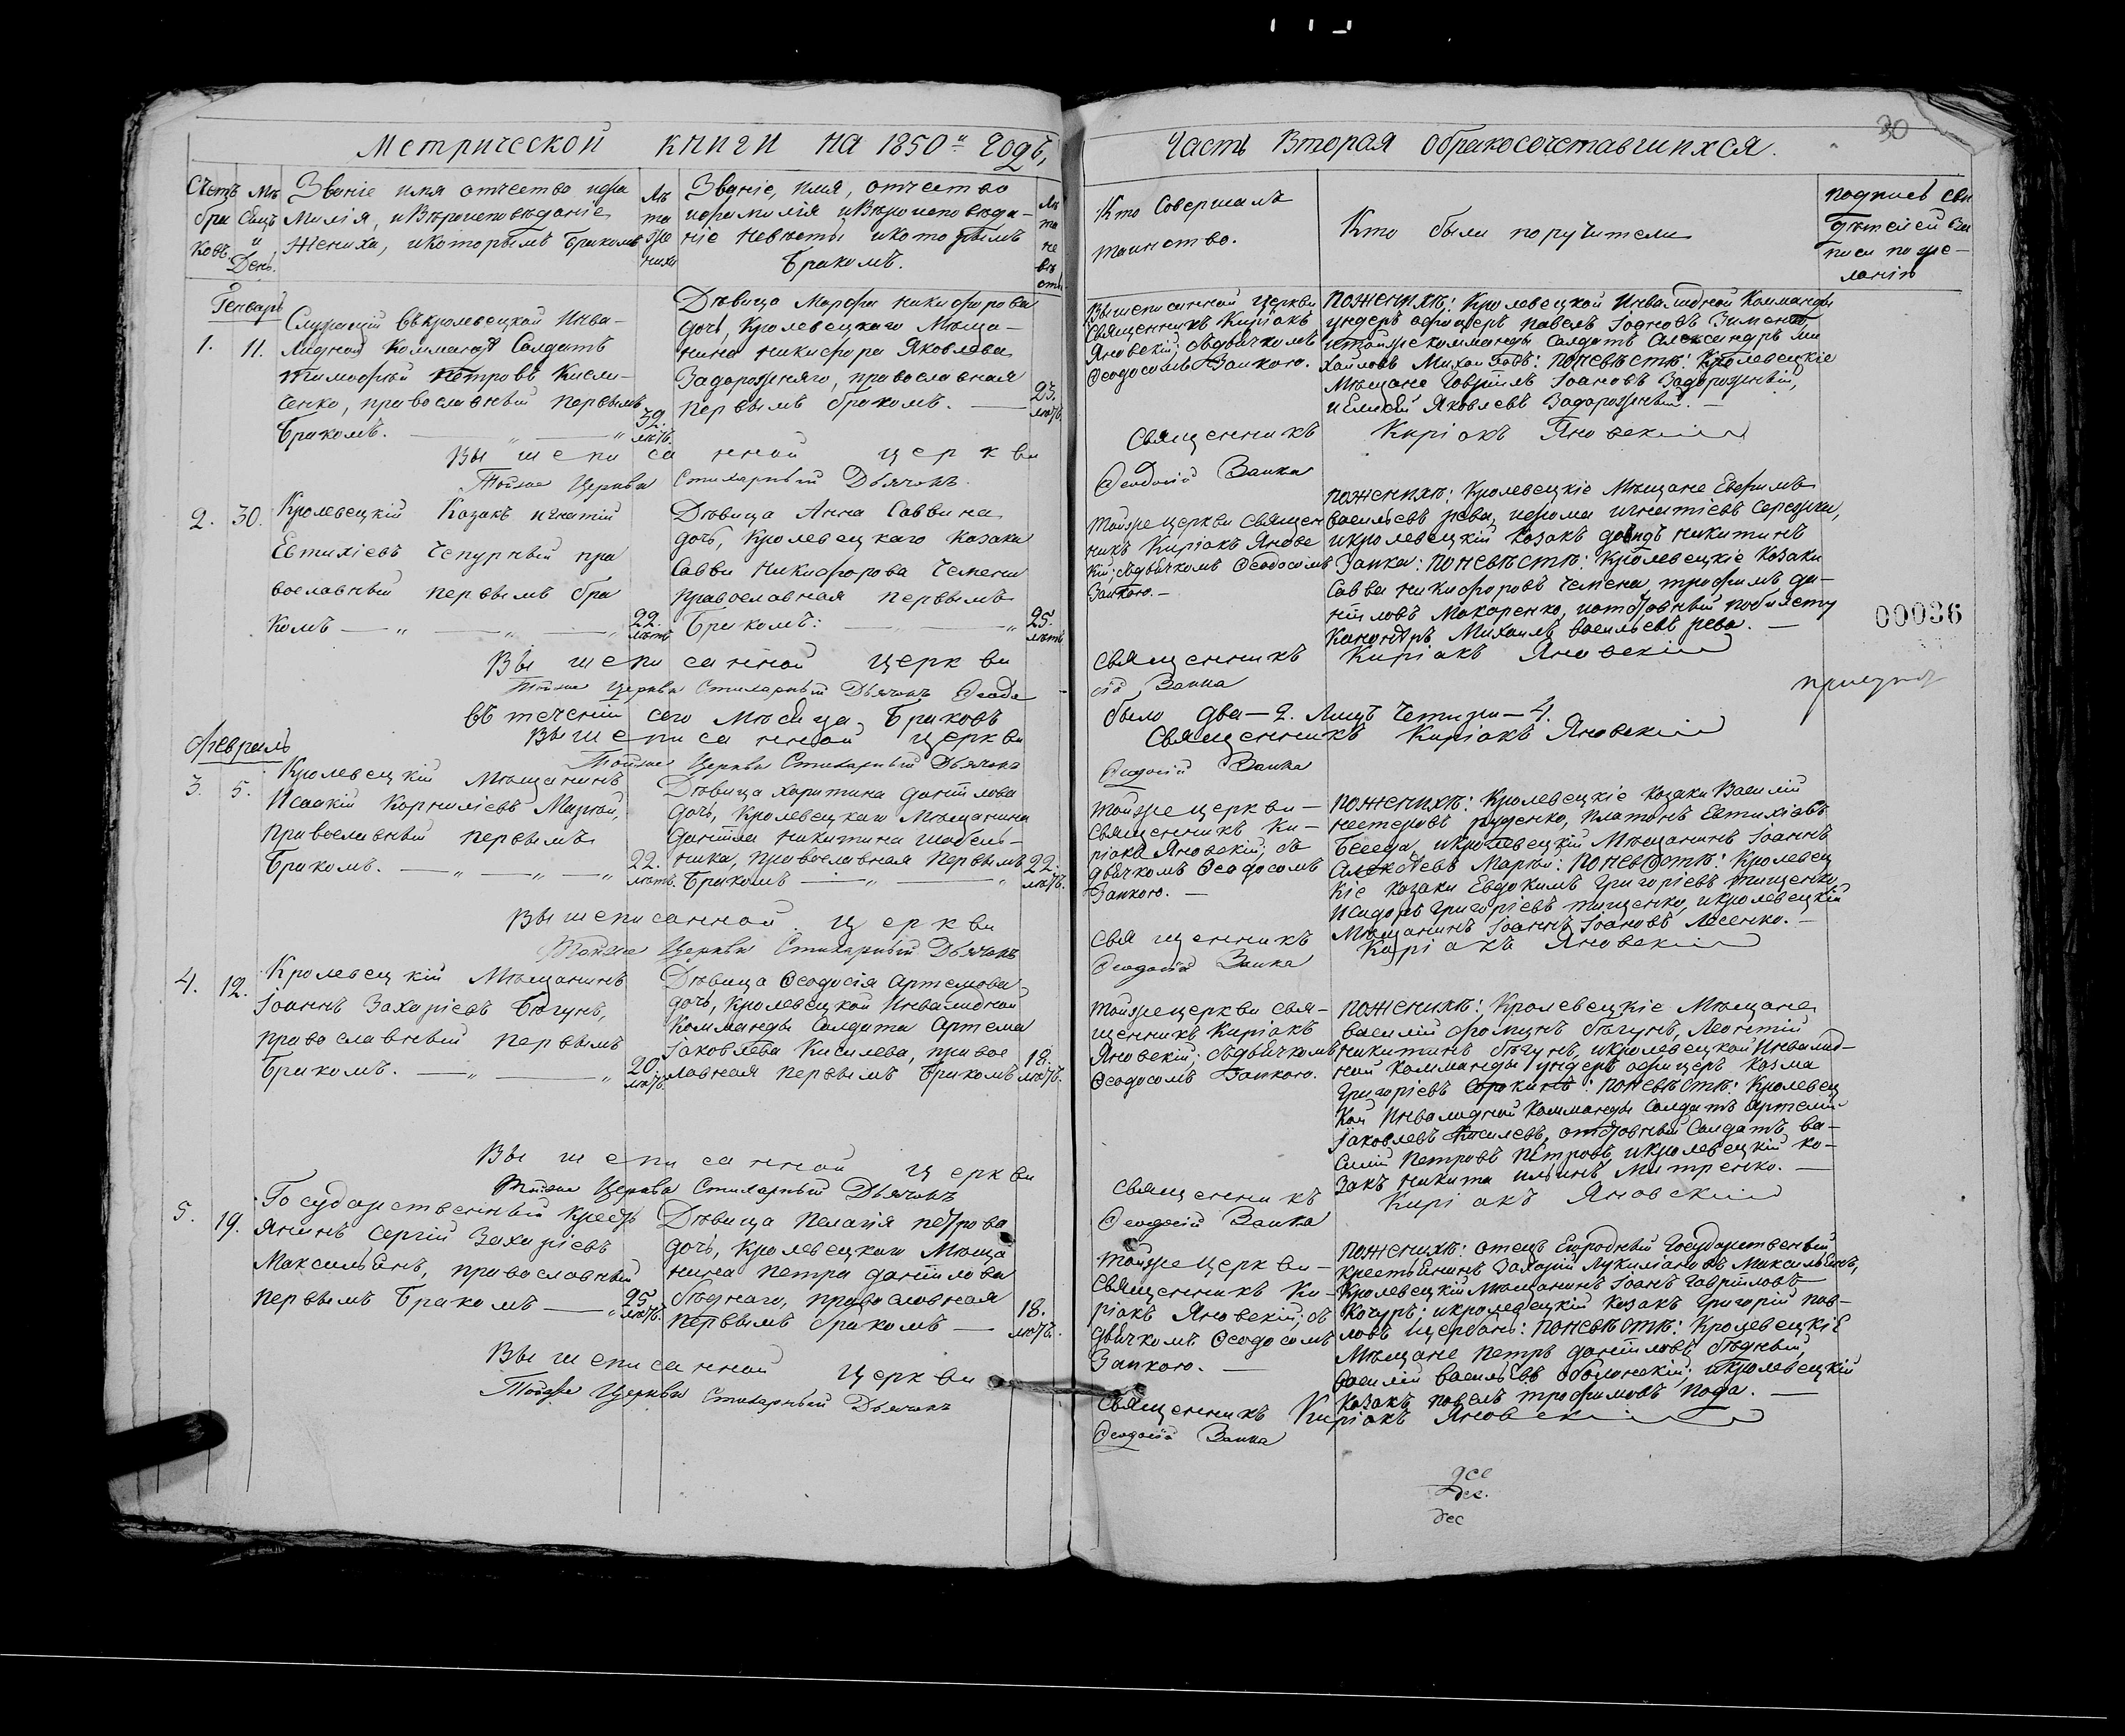 Метрической книги на 1850й Годъ,
Часть Вторая обракосочетавшихся.
30
Счетъ браковъ
Мѣсяцъ и День
Званіе имя отчество ифа
милія, иВѣроисповѣданіе
Жениха, икоторымъ бракомъ
Лѣта жениха
Званіе, имя, отчество
ифамилія иВѣроисповѣда-
ніе Невѣсты икоторымъ
Бракомъ.
Лѣта невѣсты
Кто Совершалъ
таинство.
Кто были поручители
подпись сви
дѣтелей за
писи по же-
ланію
Генварь
1. 11.
Служащій въкролевецкой Инва-
лидной Коммандѣ Солдатъ
тимофѣй петровъ Кисли-
сенко, православный первымъ
Бракомъ.
39. лѣтъ.
Дѣвица Марфа никифорова
дочь, Кролевецкаго Мѣща-
нина никифора Яковлева
Задорожняго, православная
первымъ бракомъ.
23. лѣтъ.
Вышеписанной церкви
Священникъ Киріакъ
Яновскій; сьдьячкомъ
Ѳеодосомъ Заикою.
поженихѣ: Кролевецкой Инвалидной Комманды
ундеръ офицеръ павелъ Іоановъ
итойже комманды Солдатъ Александръ Ми
хайловъ: поневѣстѣ: Кролевецкіе
Мѣщане Гавріилъ Іоановъ Задорожный,
Яковлевъ Задорожный.
Вышеписанной церкви Священникъ Киріакъ Яновскій
Тойже Церкви Стихарный Дьячокъ Ѳеодосій Заика
2. 30.
Кролевецкій Козакъ игнатій
Евтихіевъ Чепурный пра
вославный первымъ бра
комъ
22. лѣтъ
Дѣвица Анна Саввина
дочь, Кролевецкаго Козака
Саввы Никифорова Чемены
православная первымъ
Бракомъ:
25. лѣтъ
Тойже церкви Священ
никъ Киріакъ Яновс
кій; сьдьячкомъ Ѳеодосомъ
Заикою.
поженихѣ: Кролевецкіе Мѣщане Евфимъ
васильевъ рева, ифома игнатіевъ Середина,
икролевецкій Козакъ давидъ никитинъ
Заика: поневѣстѣ: Кролевецкіе Козаки
Савва никифоровъ Чемена, трофимъ да-
ніиловъ Макаренко, иотставный побилету
Канониръ Михаилъ васильевъ рева.
00036
Вышеписанной церкви Священникъ Киріакъ Яновскій
Тойже Церкви Стихарный Дьячокъ Ѳеодосій Заика
въ теченіи сего Мѣсяца, Браковъ было два—2. Лицъ Четыри—4.
Вышеписанной церкви Священникъ Киріакъ Яновскій
Тойже Церкви Стихарный Дьячокъ Ѳеодосій Заика
Февраль
3. 5.
Кролевецкій Мѣщанинъ
Исаакій Корниліевъ Мазный,
православный первымъ
Бракомъ.
22. лѣтъ.
Дѣвица харитина даніилова
дочь, Кролевецкаго Мѣщанина
даніила никитина шабель-
ника, православная первымъ
Бракомъ
22. лѣтъ.
Тойже церкви
священникъ Ки-
ріакъ Яновскій; съ
дьячкомъ Ѳеодосомъ
Заикою.
поженихѣ: Кролевецкіе козаки Василій
нестеровъ руденко, платонъ Евтихіевъ
Беседа, икролевецкій Мѣщанинъ Іоаннъ
Алексѣевъ: поневѣстѣ: Кролевец
кіе козаки Евдокимъ Григоріевъ тищенко,
Исидоръ Григоріевъ тищенко, икролевецкій
Мѣщанинъ Іоаннъ Іоановъ Лесенко.
Вышеписанной церкви Священникъ Киріакъ Яновскій
Тойже Церкви Стихарный Дьячокъ Ѳеодосій Заика
4. 12.
Кролевецкій Мѣщанинъ
Іоаннъ Захаріевъ Бѣгунъ,
православный первымъ
Бракомъ.
20. лѣтъ.
Дѣвица Ѳеодосія Артемова
дочь, Кролевецкой Инвалидной
Комманды Солдата Артема
Іаковлева Кисилева, правос
лавная первымъ Бракомъ
18. лѣтъ.
Тойжецеркви свя-
щенникъ Киріакъ
Яновскій; сьдьячкомъ
Ѳеодосомъ Заикою.
поженихѣ: Кролевецкіе Мѣщане
василій фоминъ бѣгунъ, Леонтій
никитинъ бѣгунъ, икролевецкой Инвалид-
ной Комманды ундеръ офицеръ Козма
Григоріевъ Сорокинъ: поневѣстѣ: Кролевец
кой Инвалидной Комманды Солдатъ Артемій
Іаковлевъ Кисилевъ, отставный Солдатъ ва-
силій петровъ петровъ икролевецкій ко-
закъ никита ильинъ Митренко.
Вышеписанной церкви Священникъ Киріакъ Яновскій
Тойже Церкви Стихарный Дьячокъ Ѳеодосій Заика
5. 19.
Государственный Кресть
янинъ Сергій Захаріевъ
Максильянъ, православный
первымъ Бракомъ
25 лѣтъ.
Дѣвица пелагія петрова
дочь, Кролевецкаго Мѣща
нина петра даніилова
бѣднаго, православная
первымъ бракомъ
18. лѣтъ.
Тойже церкви
священникъ Ки-
ріакъ Яновскій; съ
дьячкомъ Ѳеодосомъ
Заикою.
поженихѣ: отецъ Егородный Государственный
крестьянинъ Захарій Лукиміановъ Максильянъ,
Кролевецкій Мѣщанинъ Іоанъ Гавріиловъ
Кочуръ: икролевецкій козакъ Григорій пав-
ловъ Щербань: поневѣстѣ: Кролевецкіе
Мѣщане петръ даніиловъ бѣдный,
василій васильевъ оболонскій; икролевецкій
козакъ павелъ трофимовъ пода.
Вышеписанной церкви Священникъ Киріакъ Яновскій
Тойже Церкви Стихарный Дьячокъ Ѳеодосій Заика